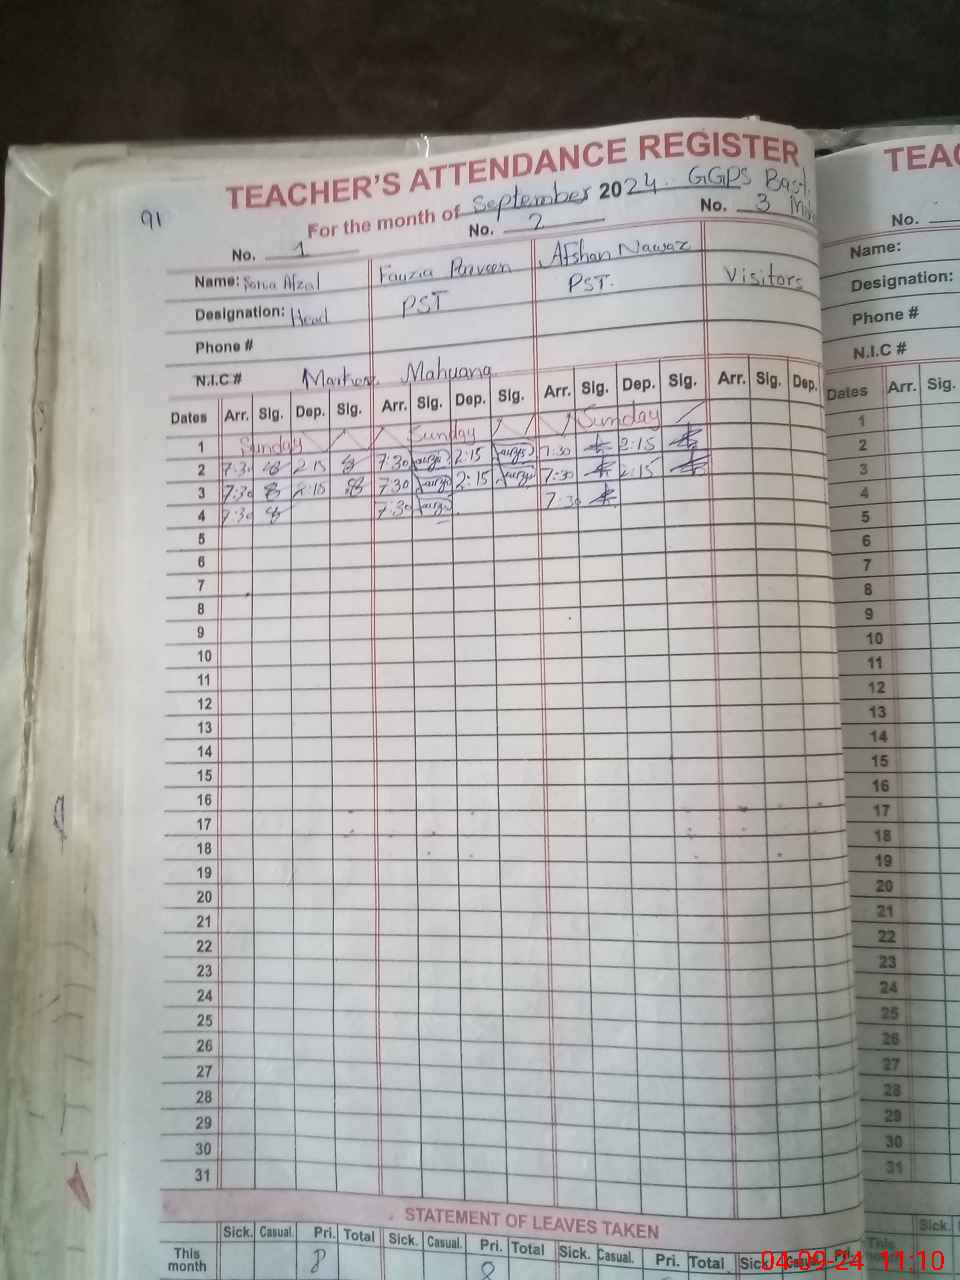 TEACHER'S ATTENDANCE REGISTER
91 For the month of September 2024. GGPS Bast
No. 1 No. 2 No. 3
Name: Sonia Afzal Fauzia Parveen Afshan Nawaz Visitors
Designation: Head PST PST.
Phone #
N.I.C # Markaz Mahuana
Dates Arr. Sig. Dep. Sig. Arr. Sig. Dep. Sig. Arr. Sig. Dep. Sig. Arr. Sig. Dep.
1 Sunday Sunday Sunday
2 7:30 2:15 7:30 2:15 7:30 2:15
3 7:30 2:15 7:30 2:15 7:30 2:15
4 7:30 7:30 7:30
5
6
7
8
9
10
11
12
13
14
15
16
17
18
19
20
21
22
23
24
25
26
27
28
29
30
31
STATEMENT OF LEAVES TAKEN
Sick. Casual. Pri. Total Sick. Casual. Pri. Total Sick. Casual. Pri. Total Sick. Pri.
This month 8 8
TEAC
No.
Name:
Designation:
Phone #
N.I.C #
Dates Arr. Sig.
1
2
3
4
5
6
7
8
9
10
11
12
13
14
15
16
17
18
19
20
21
22
23
24
25
26
27
28
29
30
31
Sick.
This month
04-09-24 11:10